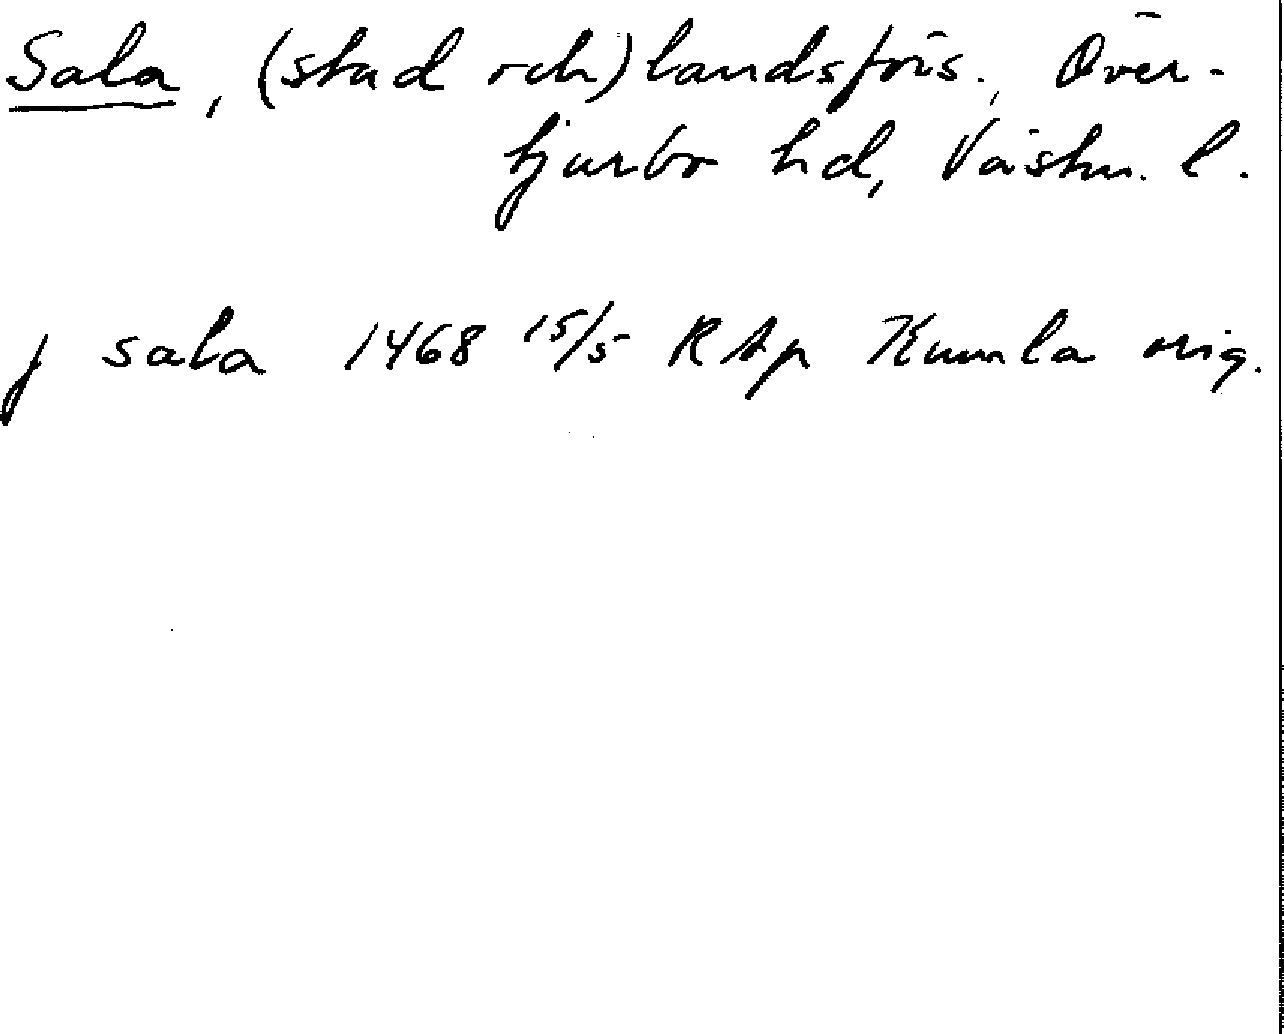 Sala, (stad och) landsförs., Över-
tjurbo hd, Västm. l.
j sala 1468 15/5 RAp Kumla orig.